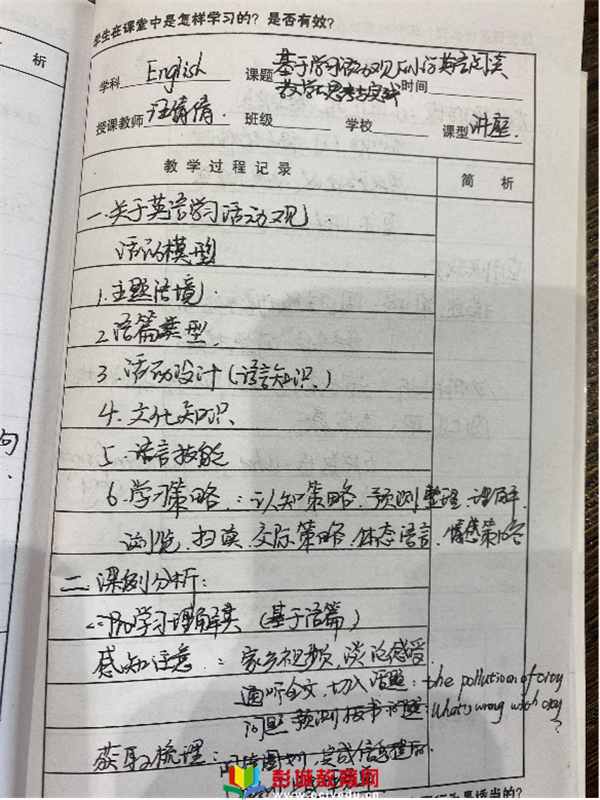 学生在课堂中是怎样学习的？是否有效？
析
学科 English 课题 基于学习活动观的小学英语阅读
教学的思考与实践 时间
授课教师 汪倩倩. 班级 学校 课型 讲座.
教学过程记录 简析
一.关于英语学习活动观.
活动模型
1.主题语境.
2.语篇类型.
3.活动设计(语言知识.)
4.文化知识
5.语言技能
6.学习策略.:认知策略.预测整理.理解.
浏览.扫读.交际策略.体态语言.情感策略
二.课例分析:
学习理解类(基于语篇)
感知注意:家乡视频,谈论感受.
通听全文,切入话题: the pollution of
问题 预测板书问题: What's wrong with
?
获取梳理:
句
彭城教育网